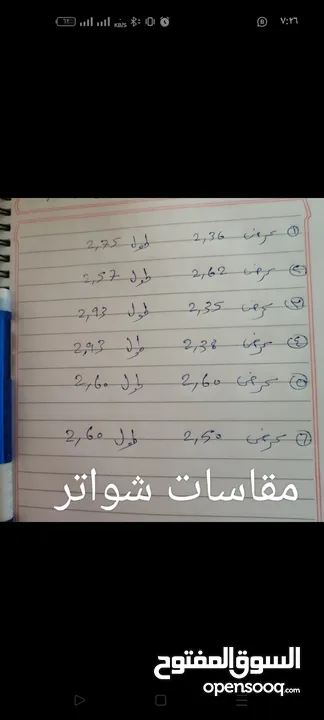 ٧:٢٦
KB/S
٦٢
① عرض 2,36 طول 2,75
② عرض 2,62 طول 2,57
③ عرض 2,35 طول 2,93
④ عرض 2,38 طول 2,93
⑤ عرض 2,60 طول 2,60
⑥ عرض 2,50 طول 2,60
مقاسات شواتر
السوق المفتوح
opensooq.com